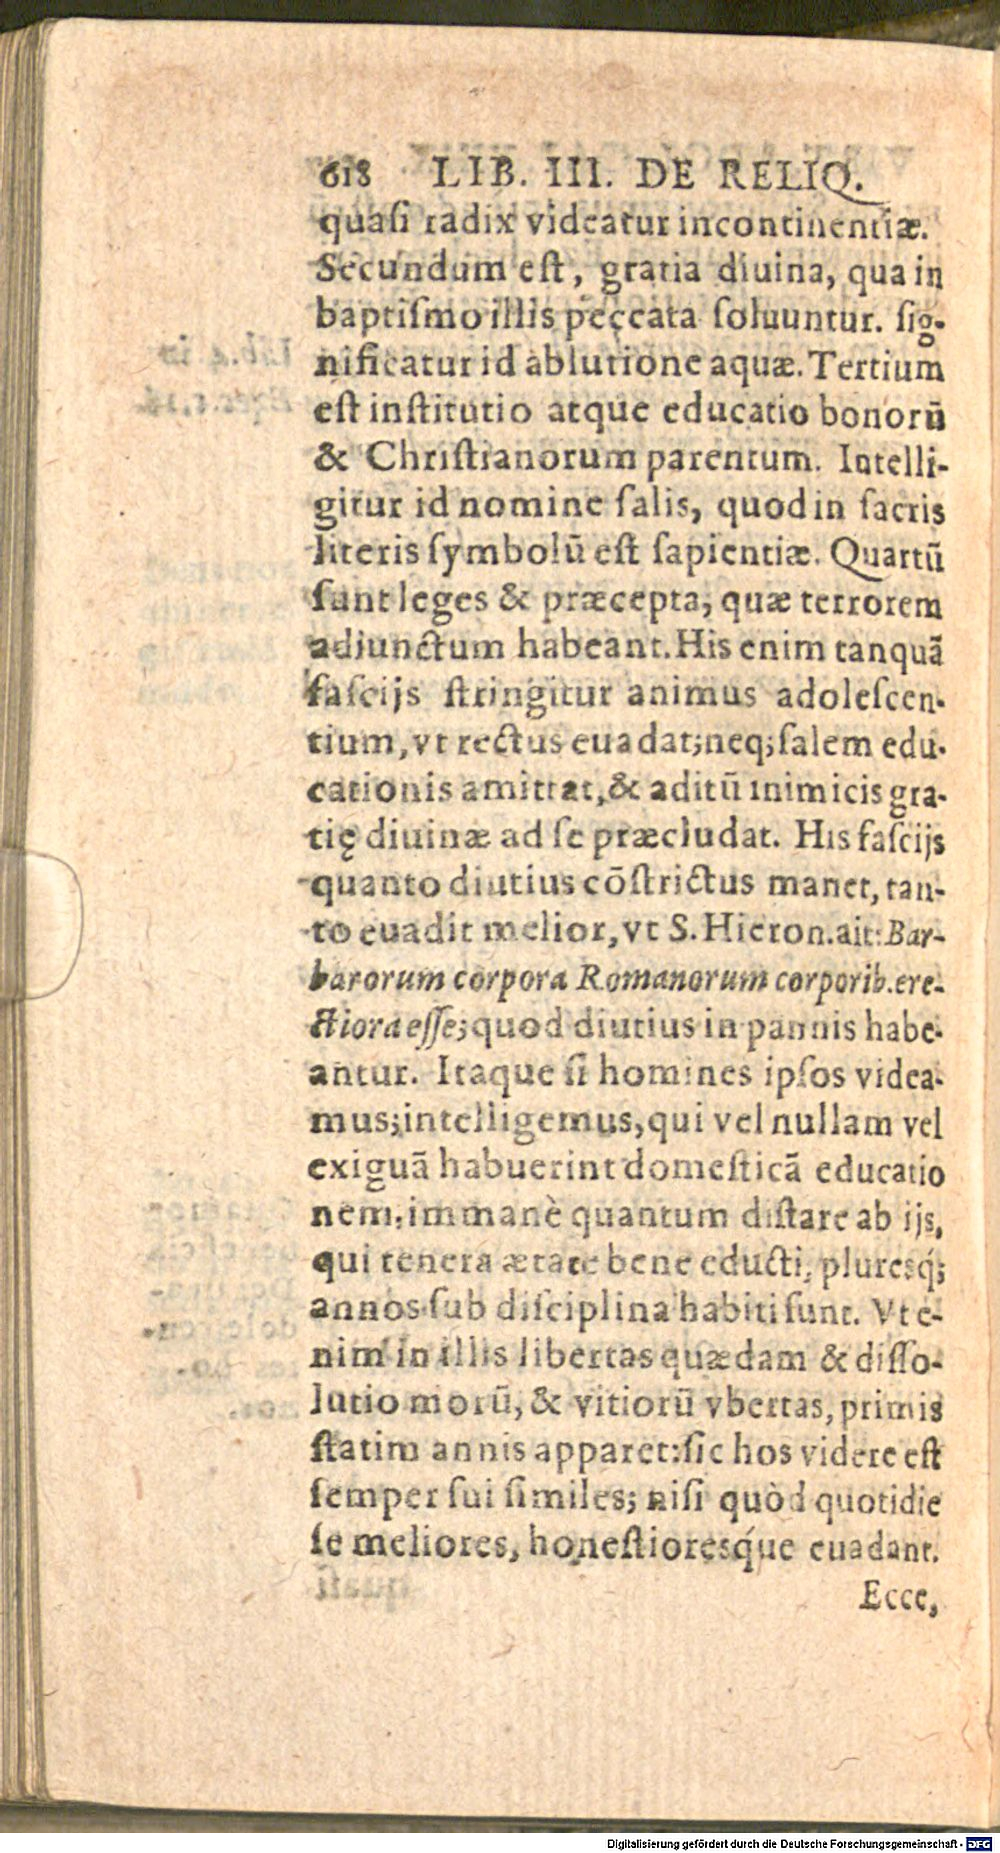 618 LIB. III. DE RELIQ.
quaſi radix videatur incontinentiæ.
Secundum eſt, gratia diuina, qua in
baptiſmo illis peccata ſoluuntur. ſig-
nificatur id ablutione aquæ. Tertium
eſt inſtitutio atque educatio bonorū
& Chriſtianorum parentum. Intelli-
gitur id nomine ſalis, quod in ſacris
literis ſymbolū eſt ſapientiæ. Quartū
ſunt leges & præcepta, quæ terrorem
adiunctum habeant. His enim tanquā
faſcijs ſtringitur animus adoleſcen-
tium, vt rectus euadat; neq; ſalem edu-
cationis amittat, & aditū inimicis gra-
tię diuinæ ad ſe præcludat. His faſcijs
quanto diutius cōſtrictus manet, tan-
to euadit melior, vt S. Hieron. ait: Bar-
barorum corpora Romanorum corporib. ere-
ctiora eſſe; quod diutius in pannis habe-
antur. Itaque ſi homines ipſos videa-
mus; intelligemus, qui vel nullam vel
exiguā habuerint domeſticā educatio
nem, immanè quantum diſtare ab ijs,
qui tenera ætate bene educti, pluresq́;
annos ſub diſciplina habiti ſunt. Vt e-
nim in illis libertas quædam & diſſo-
lutio morū, & vitiorū vbertas, primis
ſtatim annis apparet: ſic hos videre eſt
ſemper ſui ſimiles; niſi quòd quotidie
ſe meliores, honeſtioresq́ue euadant.
Ecce,
Digitalisierung gefördert durch die Deutsche Forschungsgemeinschaft - DFG